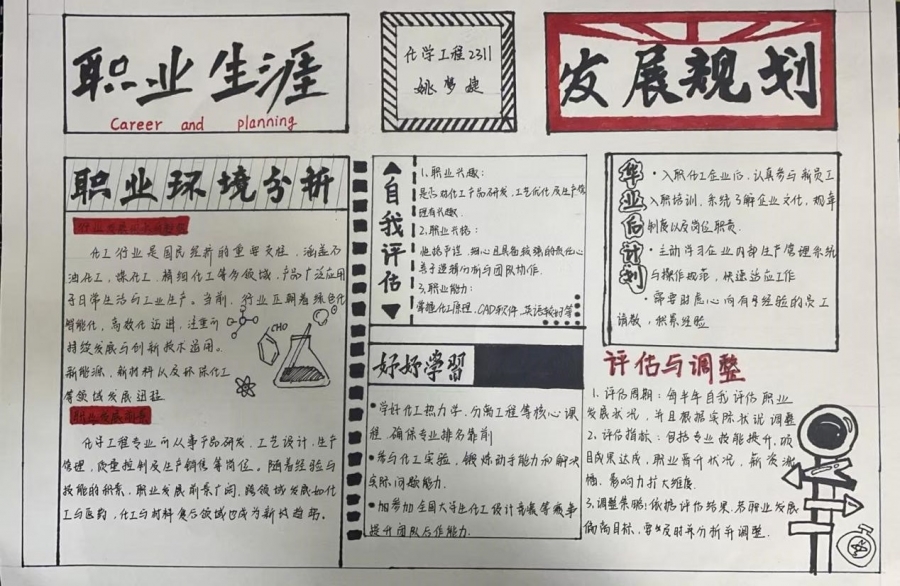 职业生涯
Career and planning
化学工程2311
姚梦婕
发展规划
职业环境分析
化工行业是国民经济的重要支柱，涵盖石
油化工、煤化工、精细化工等多领域，产品广泛应用
于日常生活与工业生产。当前，行业正朝着绿色化
智能化，高效化迈进，注重可
持续发展与创新技术运用。
新能源、新材料以及环保化工
等领域发展迅猛
职业发展前景
化学工程专业可从事产品研发、工艺设计、生产
管理，质量控制及生产销售等岗位。随着经验与
技能的积累，职业发展前景广阔，跨领域发展如化
工与医药，化工与材料复合领域也成为新的趋势。
自我评估
1.职业兴趣：
是否对化工产品研发、工艺优化及生产管
理有兴趣
2.职业性格：
性格严谨、细心且具备较强的责任心
善于逻辑分析与团队协作
3.职业能力：
掌握化工原理、CAD软件、英语较好等
好好学习
学好化工热力学、分离工程等核心课
程，确保专业排名靠前
参与化工实验，锻炼动手能力和解决
实际问题能力。
加参加全国大学生化工设计竞赛等赛事
提升团队合作能力.
毕业后计划
入职化工企业后，认真参与新员工
入职培训，系统了解企业文化，规章
制度以及岗位职责.
主动学习企业内部生产管理系统
与操作规范，快速适应工作
需要耐心向有经验的员工
请教，积累经验
评估与调整
1.评估周期：每半年自我评估职业
发展状况，并且根据实际状况调整
2.评估指标：包括专业技能提升，项
目成果达成，职业晋升状况，薪资涨
幅、影响力扩大维度.
3.调整策略：依据评估结果，若职业发展
偏离目标，要及时并分析并调整.
CHO